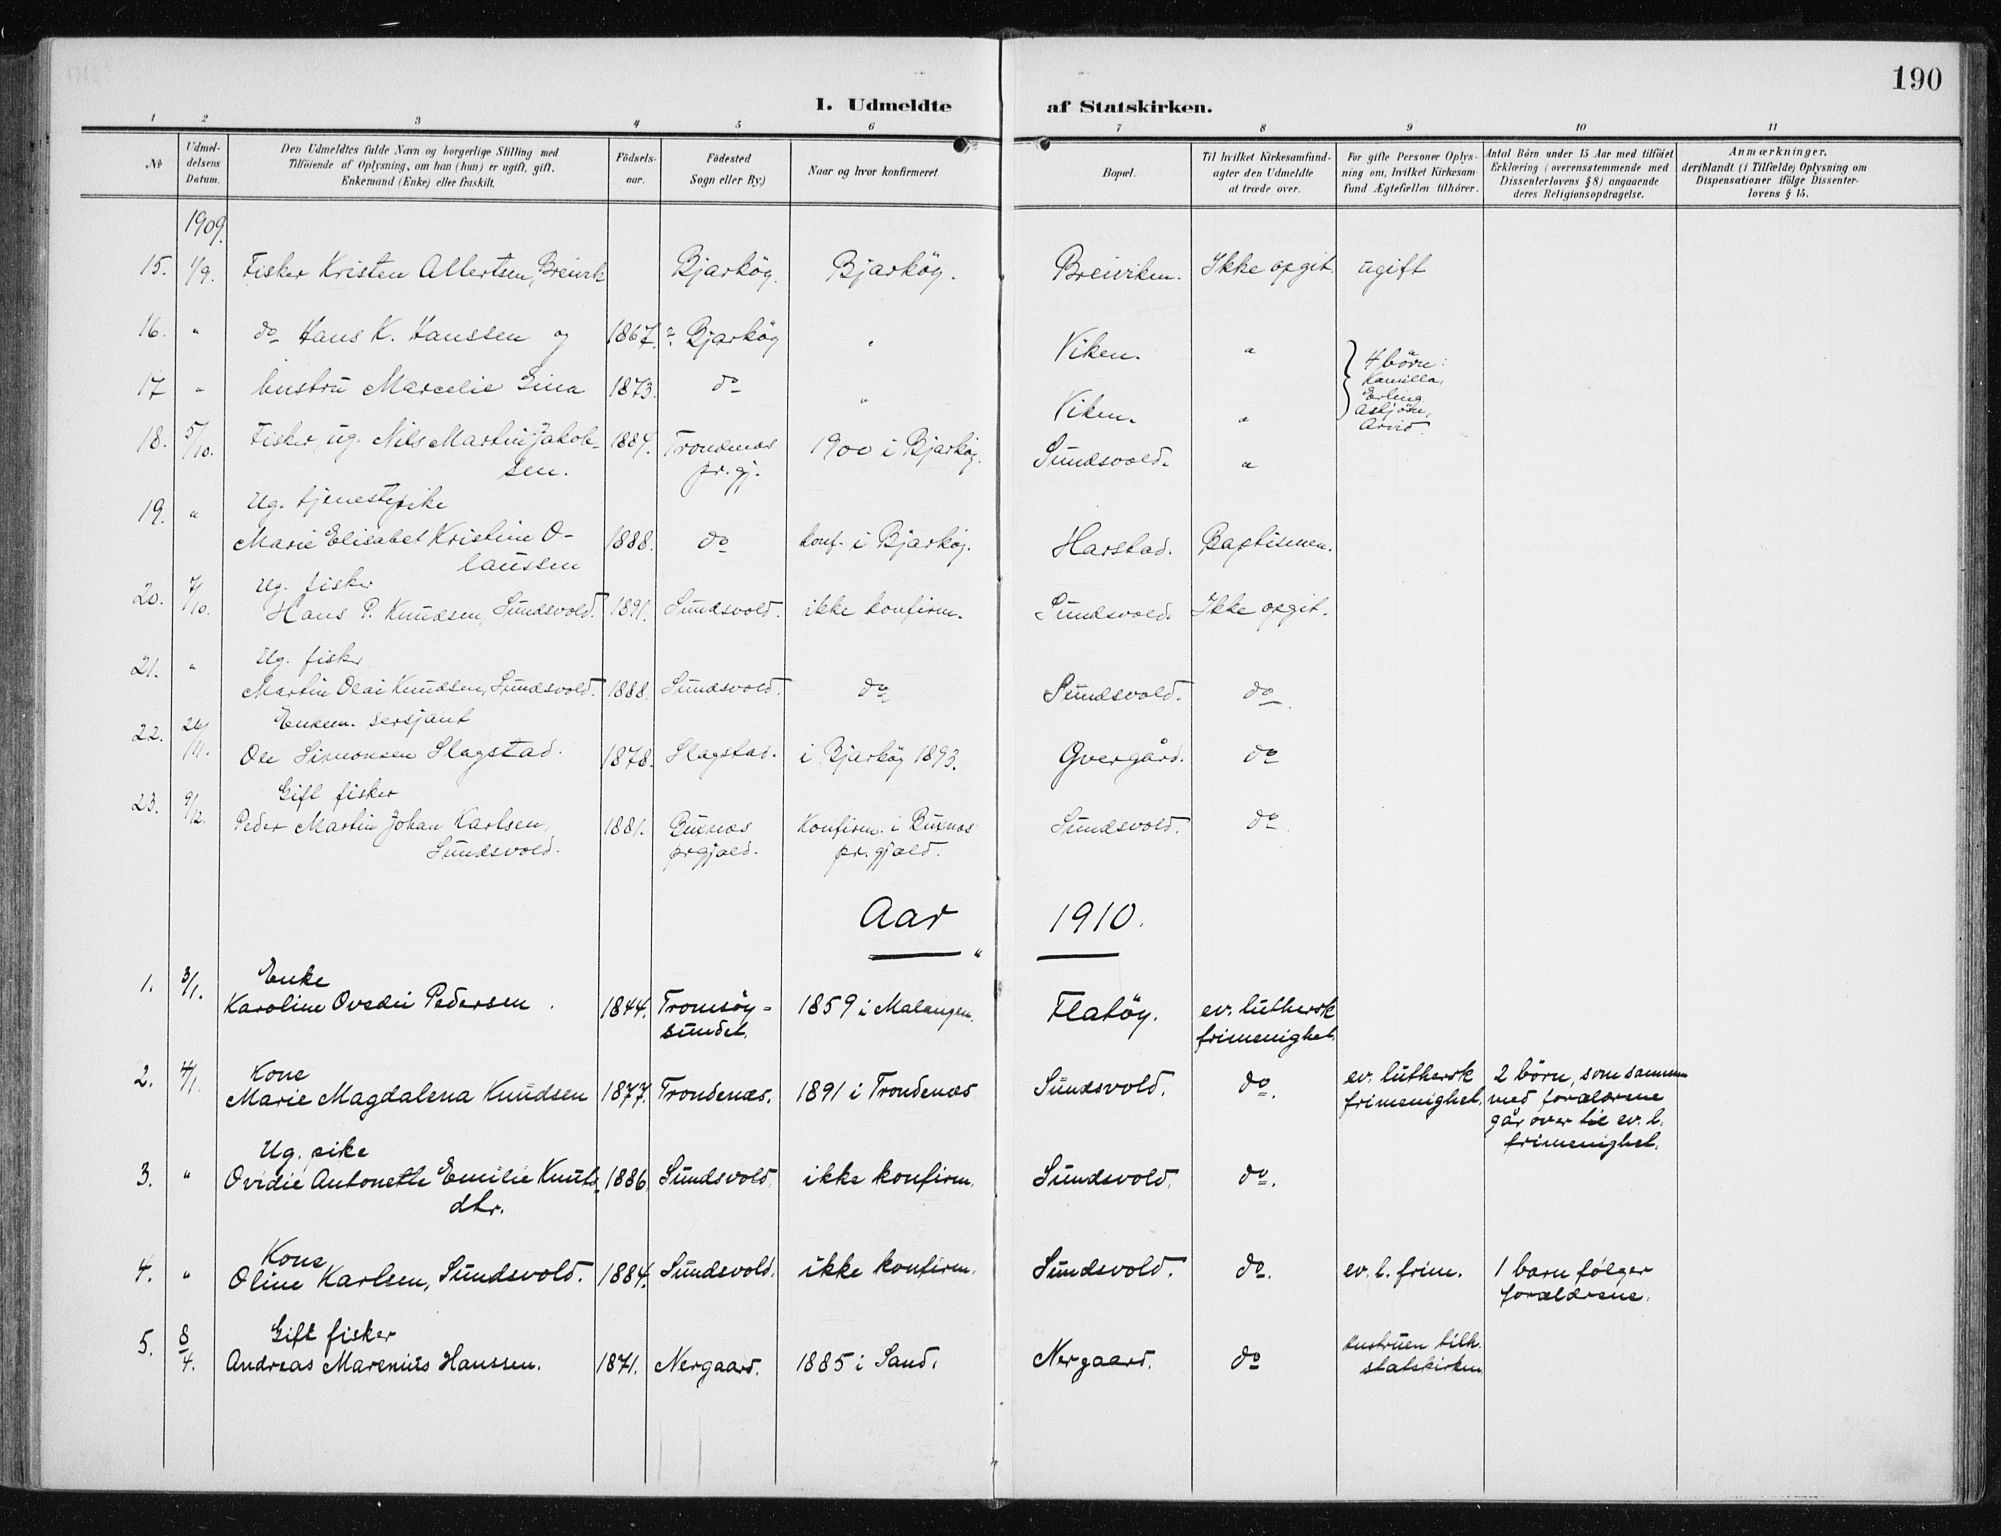 190
I. Udmeldte af Statskirken.
1 2 3 4 5 6 7 8 9 10 11
No
Udmeldelsens Datum.
Den Udmeldtes fulde Navn og borgerlige Stilling med
Tilföiende af Oplysning, om han (hun) er ugift, gift,
Enkemand (Enke) eller fraskilt.
Födselsaar.
Födested
Sogn eller By.)
Naar og hvor konfirmeret.
Bopæl.
Til hvilket Kirkesamfund-
agter den Udmeldte
at træde over.
For gifte Personer Oplys-
ning om, hvilket Kirkesam-
fund Ægtefællen tilhörer.
Antal Börn under 15 Aar med tilföiet
Erklæring (overensstemmende med
Dissenterlovens § 8) angaaende
deres Religionsopdragelse.
Anmærkninger,
der(blandt (i Tilfælde) Oplysning om
Dispensationer ifölge Dissenter-
lovens § 15.
1909.
15. 1/9. Fisker Kristen Albertsen, Breivik Bjarköy. Bjarköy. Breiviken. Ikke opgit. ugift
16. " do Hans K. Hanssen og 1867. ? Bjarköy " Viken. " 4 börn:
Kamilla,
Erling
Asbjörn,
Arvid.
17 " hustru Marcelie Lina 1873. do " Viken. "
18. 5/10. Fisker, ug. Nils Martin Jakob-
sen. 1884. Trondenæs
pr.gj. 1900 i Bjarköy. Sundsvold. "
19. " Ug. tjenestepike
Marie Elisabet Kristine O-
laussen 1888. do konf. i Bjarköy. Harstad. Baptismen.
20. 7/10. Ug. fisker
Hans P. Knudsen, Sundsvold. 1891. Sundsvold. ikke konfirm. Sundsvold. Ikke opgit.
21. " Ug. fisker
Martin Olai Knudsen, Sundsvold. 1888. Sundsvold. do Sundsvold. do
22. 26/11. Enkem. sersjant
Ole Simonsen Slagstad. 1878. Slagstad. i Bjarköy 1893. Qvergård. do
23. 9/12. Gift fisker
Peder Martin Johan Karlsen,
Sundsvold. 1881. Buxnæs
prgjæld. Konfirm. i Buxnæs
pr.gjæld. Sundsvold. do.
Aar 1910.
1. 3/1. Enke
Karoline Ovedie Pedersen. 1844. Tromsöy-
sundet. 1859 i Malangen. Flatöy. ev. luthersk
frimenighet.
2. 4/1. Kone
Marie Magdalena Knudsen 1877. Trondenæs. 1891 i Trondenæs Sundsvold. do. ev. luthersk
frimenighet. 2 börn, som sammen
med forældrene
går over til ev. l.
frimenighet.
3. " Ug. pike
Ovidie Antonette Emilie Knuts-
dtr. 1886. Sundsvold. ikke konfirm. Sundsvold. do.
4. " Kone
Oline Karlsen, Sundsvold. 1884. Sundsvold. ikke konfirm. Sundsvold. do. ev. l. frim. 1 barn følger
forældrene.
5. 8/4. Gift fisker
Andreas Marenius Hanssen. 1871. Nergaard. 1885 i Sand. Nergaard. do hustruen tilh.
statskirken